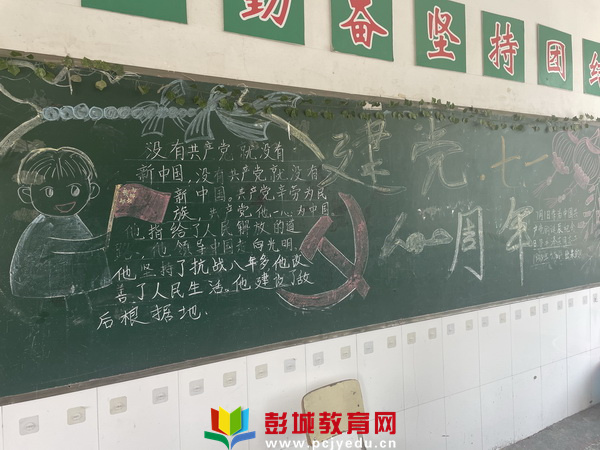 勤 奋 坚 持 团 结
没有共产党就没有
新中国,没有共产党就没有
新中国。共产党辛劳为民
族,共产党他一心为中国
他指给了人民解放的道
路,他领导中国走向光明.
他坚持了抗战八年多他改
善了人民生活.他建设了敌
后根据地.
建党.七一
周年
彭城教育网
www.pcjyedu.cn